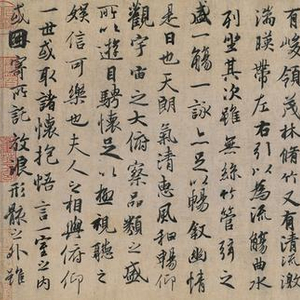 有峻領茂林脩竹又有清流激
湍暎帶左右引以為流觴曲水
列坐其次雖無絲竹管弦之
盛一觴一詠亦足以暢敘幽情
是日也天朗氣清惠風和暢仰
觀宇宙之大俯察品類之盛
所以遊目騁懷足以極視聽之
娛信可樂也夫人之相與俯仰
一世或取諸懷抱悟言一室之內
或因寄所託放浪形骸之外雖